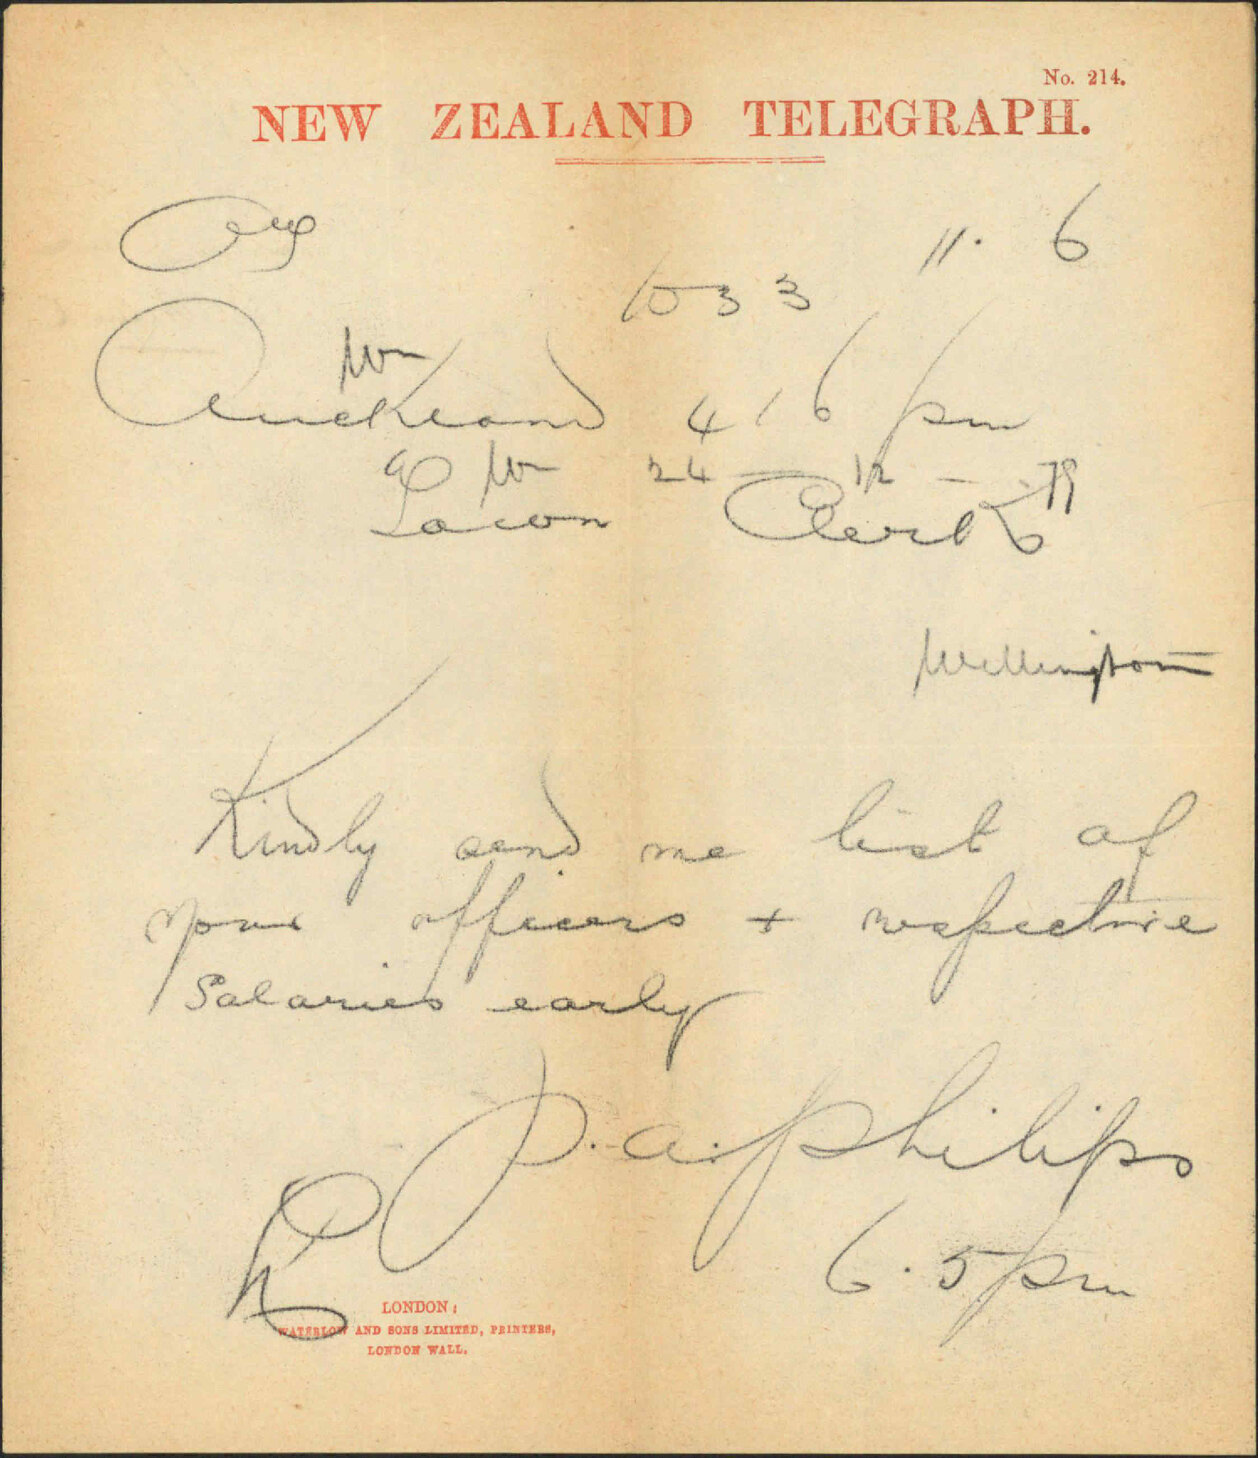 No. 214.
NEW ZEALAND TELEGRAPH.
11. 6
1033
Wn
Auckland 416 pm
Wn 24 - 12 - 79
Town Clerk
Wellington
Kindly send me list of
your officers + respective
Salaries early
P. A. Philips
6.5 pm
LONDON:
WATERLOW AND SONS LIMITED, PRINTERS,
LONDON WALL.